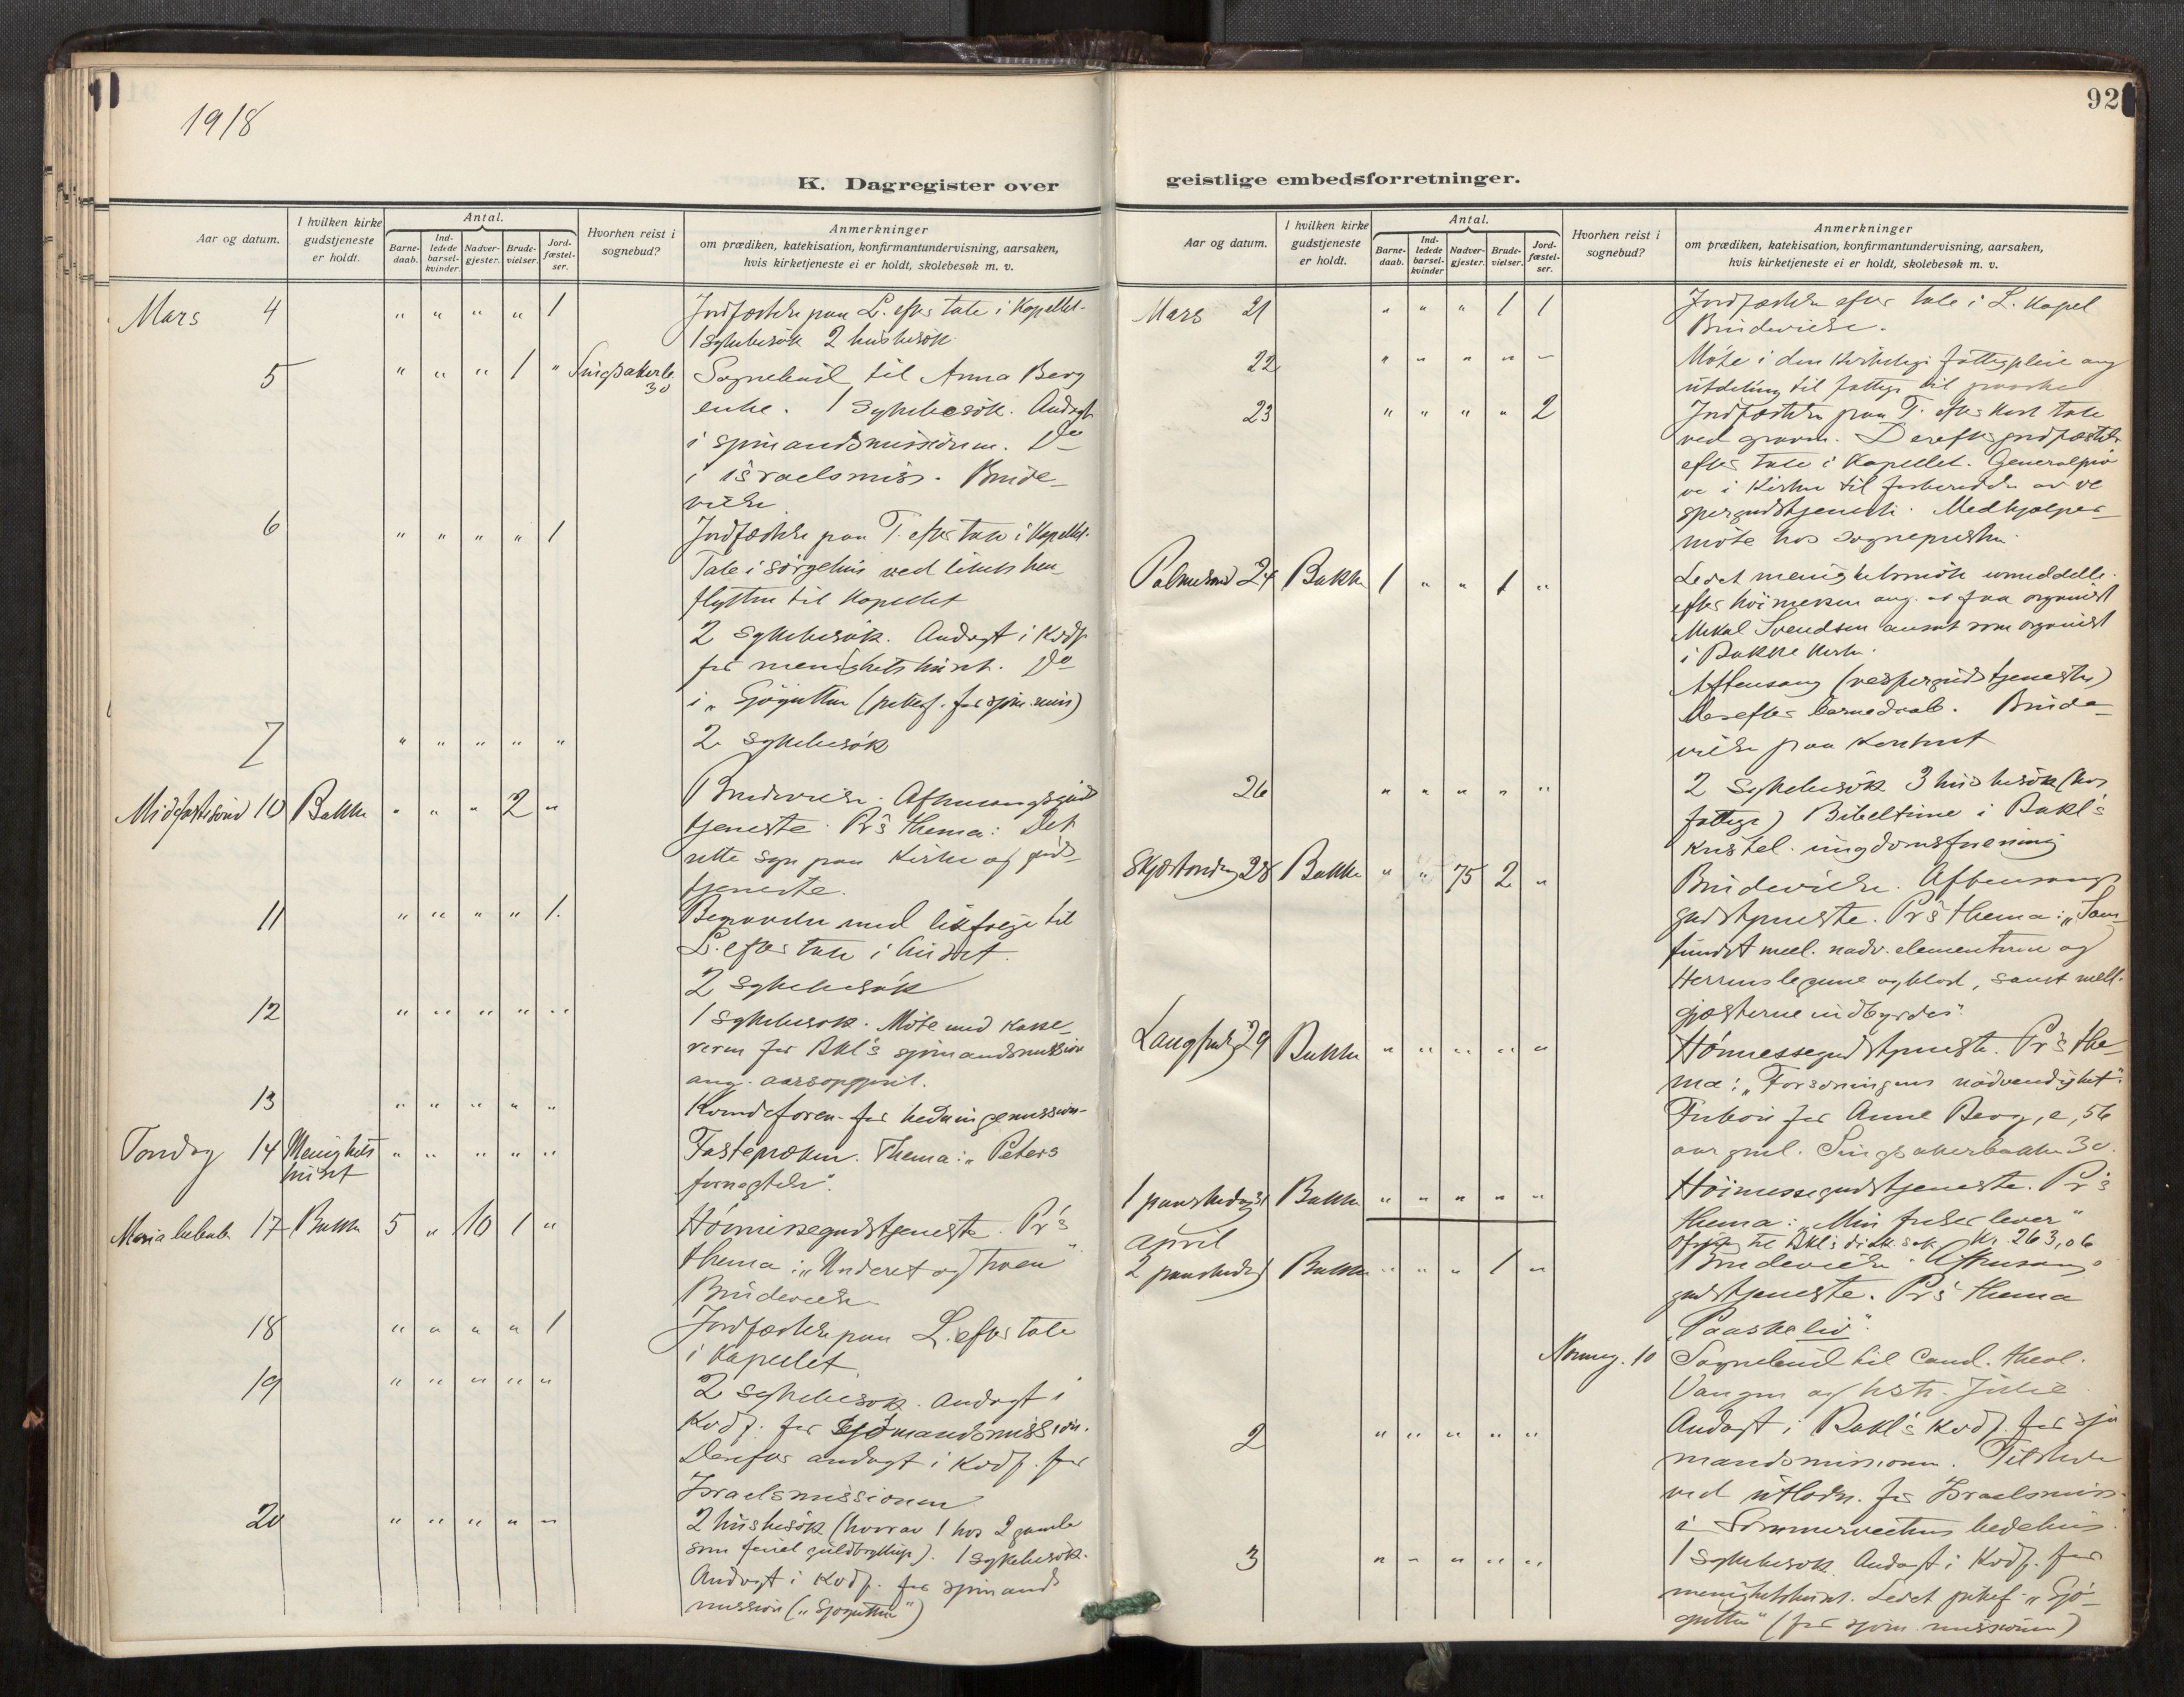 1918
92
K. Dagregister over geistlige embedsforretninger.
Aar og datum.
I hvilken kirke gudstjeneste er holdt.
Antal.
Barne-daab.
Ind-ledede barsel-kvinder.
Nadver-gjester.
Brude-vielser.
Jord-fæstel-ser.
Hvorhen reist i sognebud?
Anmerkninger
om prædiken, katekisation, konfirmantundervisning, aarsaken,
hvis kirketjeneste ei er holdt, skolebesøk m. v.
Mars 4 " " " " 1 Jordfæstelse paa L. efter tale i Kapellet.
1 sykebesøk 2 husbesøk
5 " " " 1 " Singsakerb. 30 Sognebud til Anna Berg
enke. 1 Sykebesøk. Andagt
i sjømandsmissionen. Do
i israelsmiss. Brude-
vielse
6 " " " " 1 Jordfæstelse paa T. efter tale i Kapellet.
Tale i sørgehus ved likets hen-
flytten til Kapellet
2 Sykebesøk. Andagt i Kvdf.
for menighetshuset. Do
i "Sjøgutten (pikef. for sjøm. miss)
7 " " " " " 2 Sykebesøk
Midfastesønd 10 Bakke " " " 2 " Brudevielse. Aftensangsgud
tjeneste. Pr's thema: Det
rette syn paa Kirke og guds-
tjeneste.
11 " " " " 1. Begravelse med likfølge til
L. efter tale i huset.
2 Sykebesøk
12 " " " " " 1 Sykebesøk. Møte med Kasse-
reren for Bkl's sjømandsmission
ang. aarsopgjøret.
13 " " " " " Kvindeforen. for hedningemission
Torsdag 14 Menighets huset " " " " " Fastepræken. Thema: "Peters
fornegtelse".
Maria bebud. 17 Bakke 5 " 10 1 " Høimissegudstjeneste. Pr's
thema: "Underet og troen"
Brudevielse
18 " " " " 1 Jordfæstelse paa L. efter tale
i Kapellet
19 " " " " " 2 sykebesøk. Andagt i
Kvdf. for Sjømandsmission.
Derefter andagt i Kvdf. for
Israelsmissionen
20 " " " " " 2 husbesøk (hvorav 1 hos 2 gamle
som feiret guldbryllup). 1 sykebesøk.
Andagt i Kvdf. for sjømands
mission ("Sjøgutten")
Aar og datum.
I hvilken kirke gudstjeneste er holdt.
Antal.
Barne-daab.
Ind-ledede barsel-kvinder
Nadver-gjester.
Brude-vielser.
Jord-fæstel-ser.
Hvorhen reist i sognebud?
Anmerkninger
om prædiken, katekisation, konfirmantundervisning, aarsaken,
hvis kirketjeneste ei er holdt, skolebesøk m. v.
Mars 21 " " " 1 1 Jordfæstelse efter tale i L. Kapel
Brudevielse.
22 " " " " " Møte i den Kirkelige fattigpleie ang
utdeling til fattige til paaske
23 " " " " 2 Jordfæstelse paa T. efter kort tale
ved graven. Derefter jordfæstelse
efter tale i Kapellet. Generalprø
ve i Kirken til forberedelse av ve
spergudstjeneste. Medhjælper-
møte hos sognepresten.
Palmesønd 24 Bakke 1 " " 1 " Ledet menighetsmøte umiddelb.
efter høimessen ang. at faa organist
Mikal Svendsen ansat som organist
i Bakke Kirke.
Aftensang (vespergudstjeneste)
Derefter barnedaab. Brude-
vielse paa Kontoret
26 " " " " " 2 Sykebesøk 3 husbesøk (hos
fattige) Bibeltime i Bakl's
kristel. ungdomsforening
Skjærtorsdag 28 Bakke " " 75 2 " Brudevielse. Aftensangs
gudstjeneste. Pr's thema: "Sam-
fundet mell. nadv. elementerne og
Herrens legeme og blod, samt mell.
gjæsterne indbyrdes".
Langfredag 29 Bakke " " " " " Høimessegudstjeneste. Pr's the-
ma: "Forsoningens nødvendighet".
Forbøn for Anne Berg, e, 56
aar gml. Singsakerbakken 30.
1 paaskedag 31 Bakke " " " " " Høimessegudstjeneste. Pr's
thema: "Min frelser lever"
Ofring til Bkl's diak. sak Kr. 263,06
april
2 paaskedag 1 Bakke " " " 1 " Brudevielse. Aftensangs
gudstjeneste. Pr's thema
"Paaskeliv".
10 Sognebud til Cand. theol.
og hstr. Julie
2 " " " " " Andagt i Bakl's Kvdf. for sjø
mandsmissionen. Tilstede
ved utlodn. for Israelsmiss.
i bedehus.
3 " " " " " 1 Sykebesøk. Andagt i Kvdf. for
menighetshuset. Ledet pikef. "Sjø-
gutten" (for sjøm. missionen)